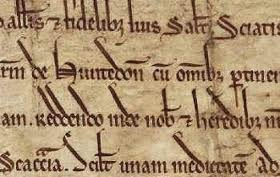 ballis & fidelibȝ suis Salt̃. Sciatis
de Huntedoñ cũ om̃ibȝ ptinen
am. Reddendo inde nob̃ & heredibȝ
Scacc̃ia. Scilt̃ unam medietatē Ad